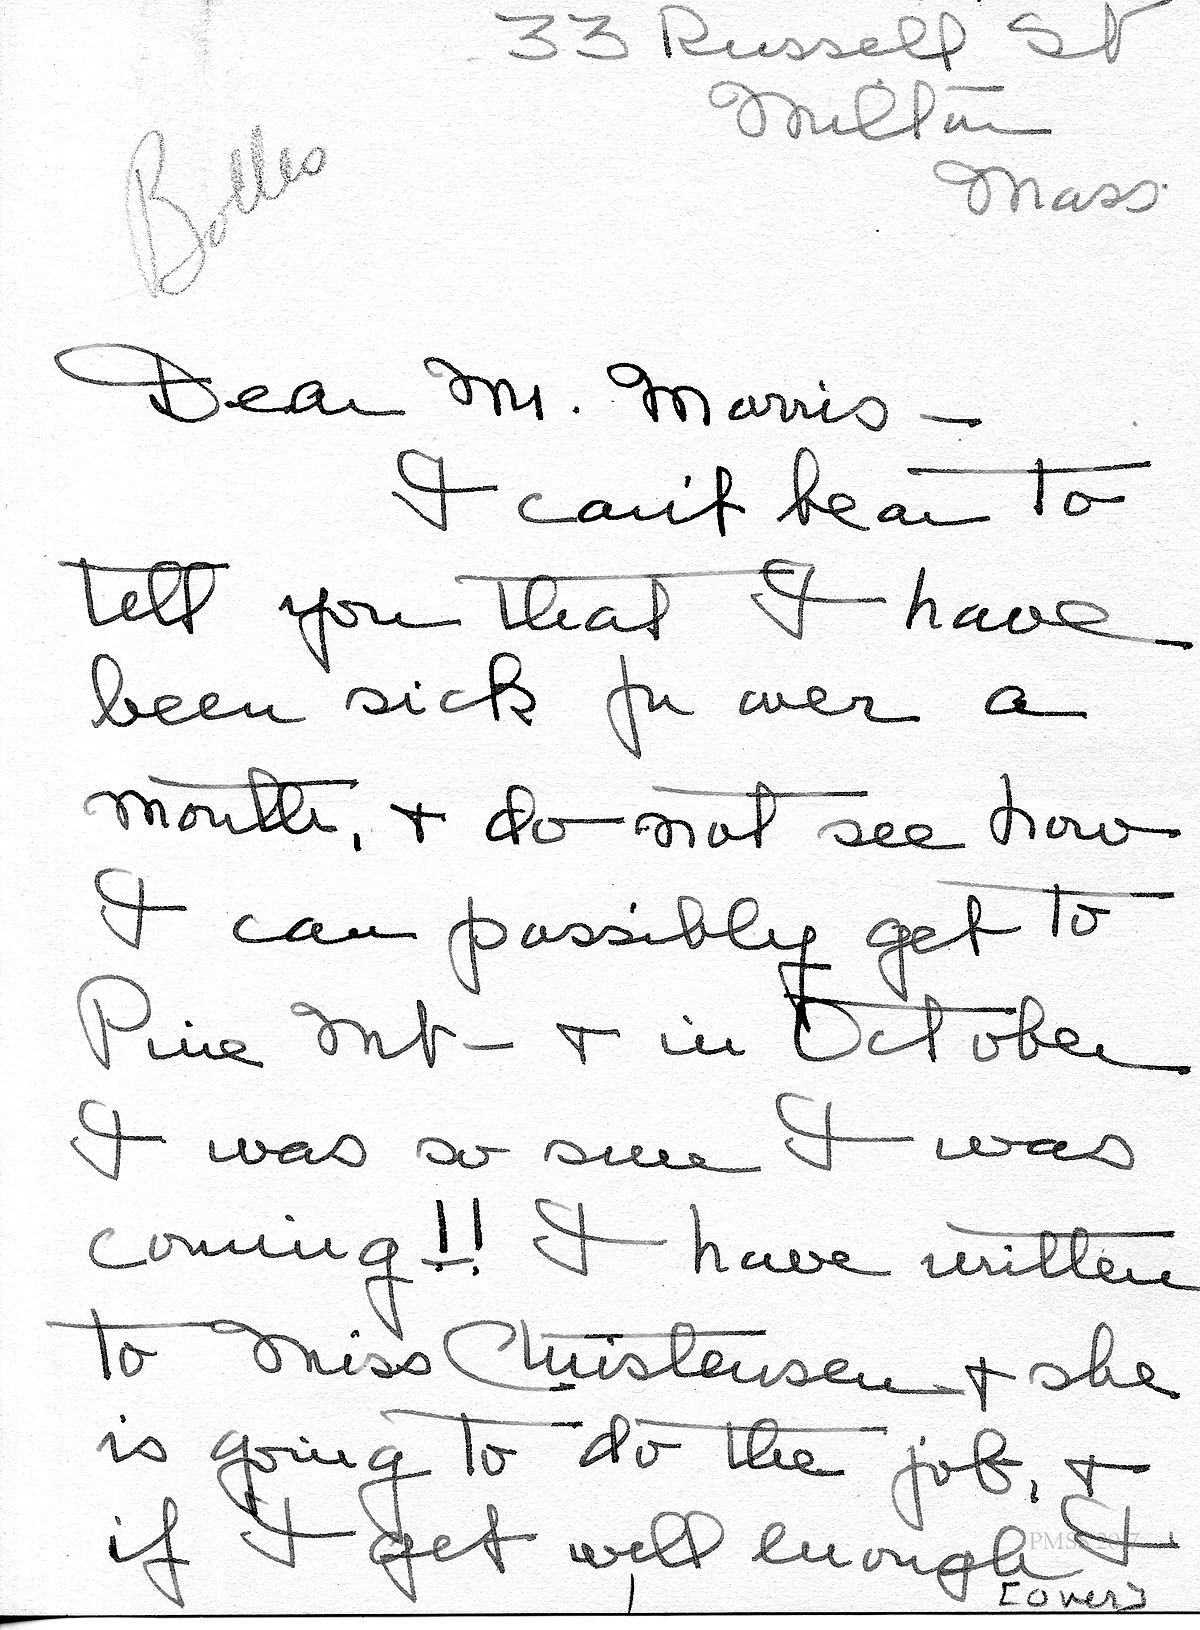 33 Russell St
Milton
Mass.
Bolles
Dear Mr. Morris —
I can't bear to
tell you that I have
been sick for over a
month, + do not see how
I can possibly get to
Pine Mt — + in October
I was so sure I was
coming!! I have written
to Miss Christensen + she
is going to do the job, +
if I get well enough I
PMSS 2017
[over]